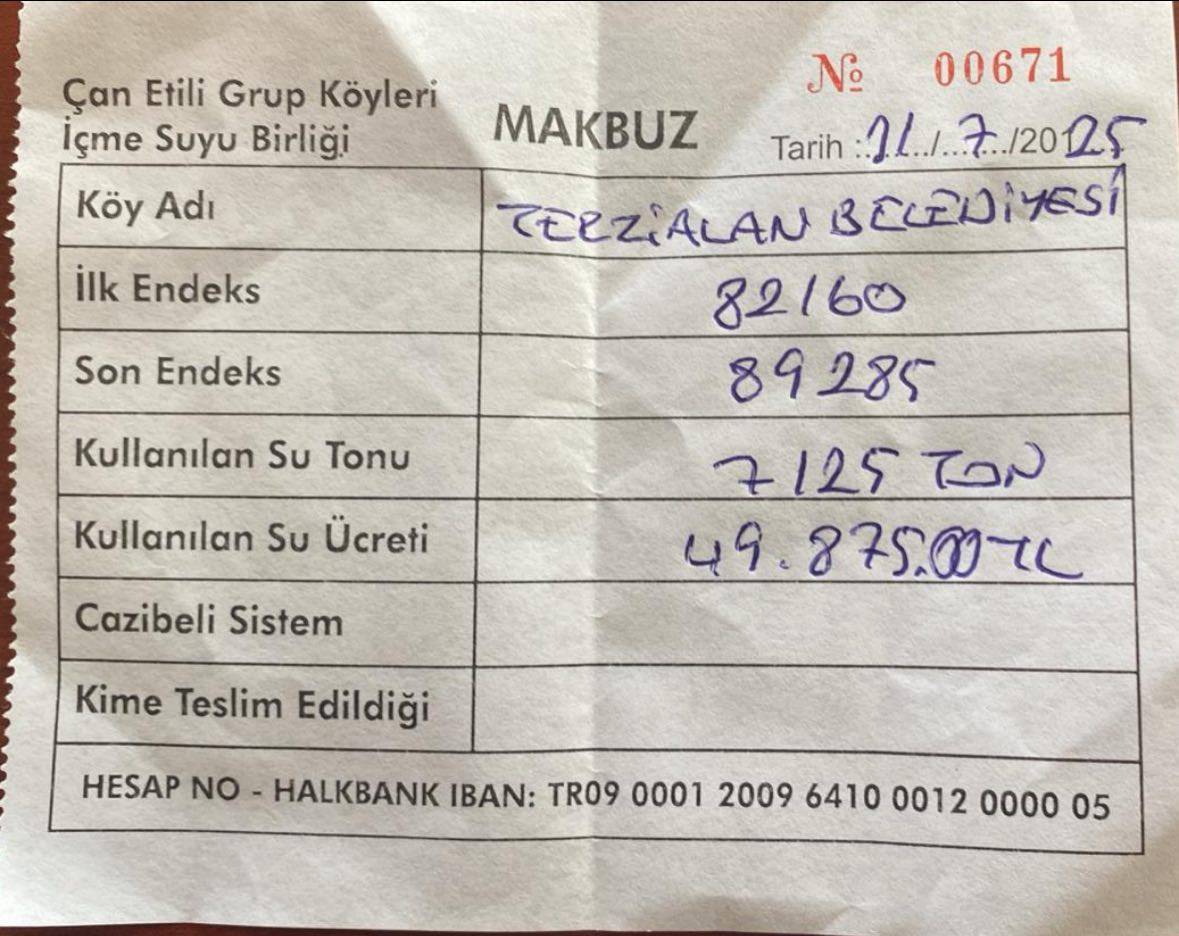 № 00671
Çan Etili Grup Köyleri
İçme Suyu Birliği
MAKBUZ
Tarih : 11/7/2025
Köy Adı TERZİALAN BELEDİYESİ
İlk Endeks 82160
Son Endeks 89285
Kullanılan Su Tonu 7125 TON
Kullanılan Su Ücreti 49.875.00 TL
Cazibeli Sistem
Kime Teslim Edildiği
HESAP NO - HALKBANK IBAN: TR09 0001 2009 6410 0012 0000 05